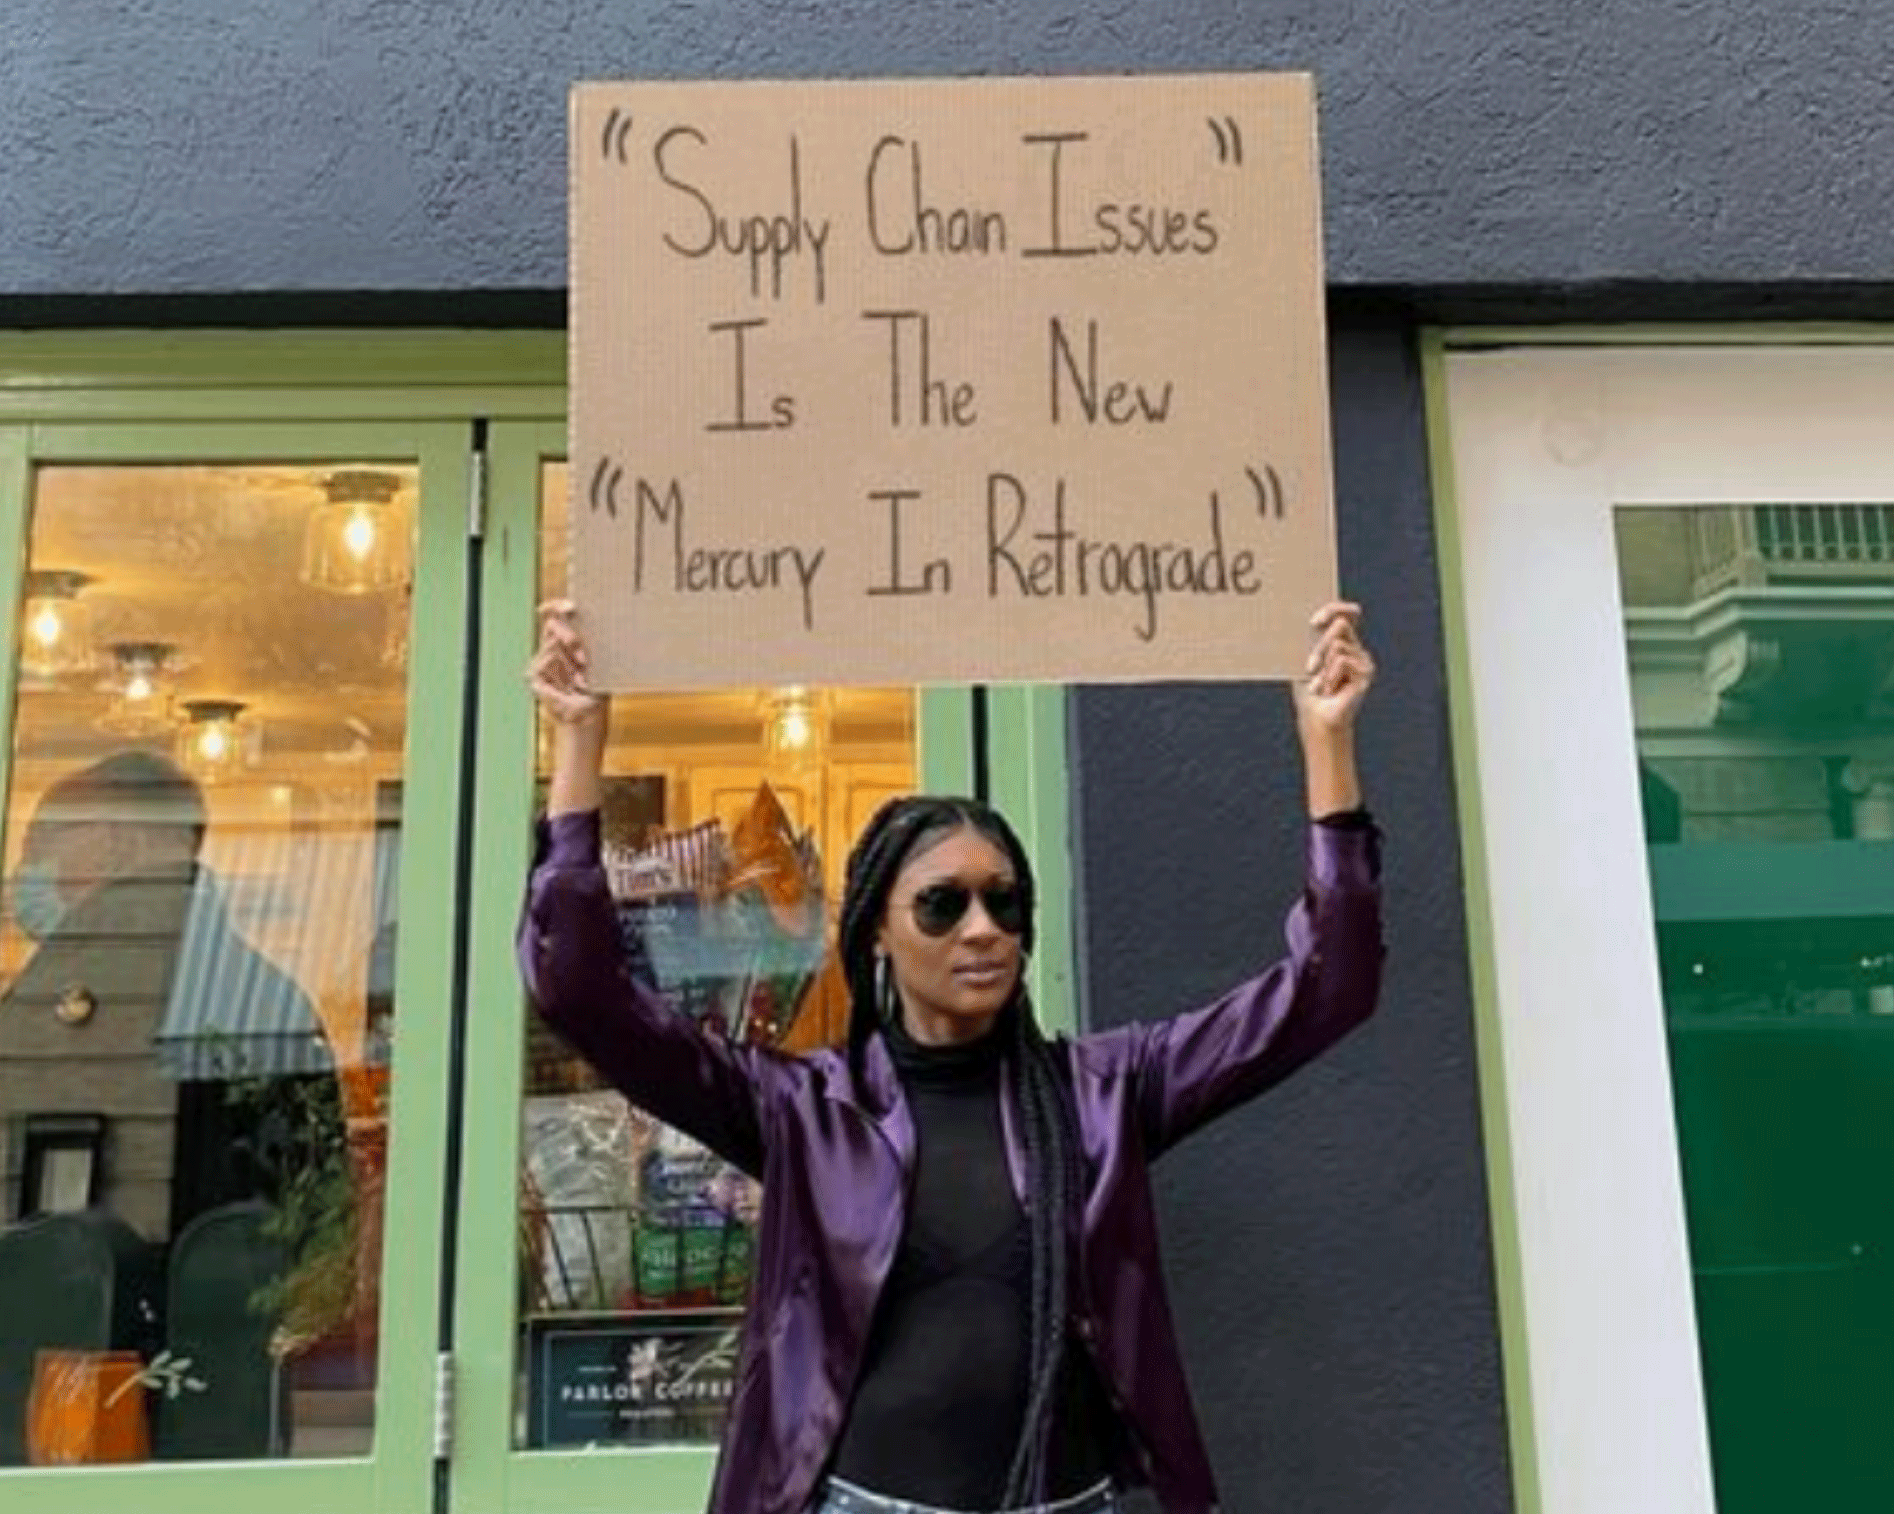 "Supply Chain Issues"
Is The New
"Mercury In Retrograde"
Tim's
PARLOR COFFEE